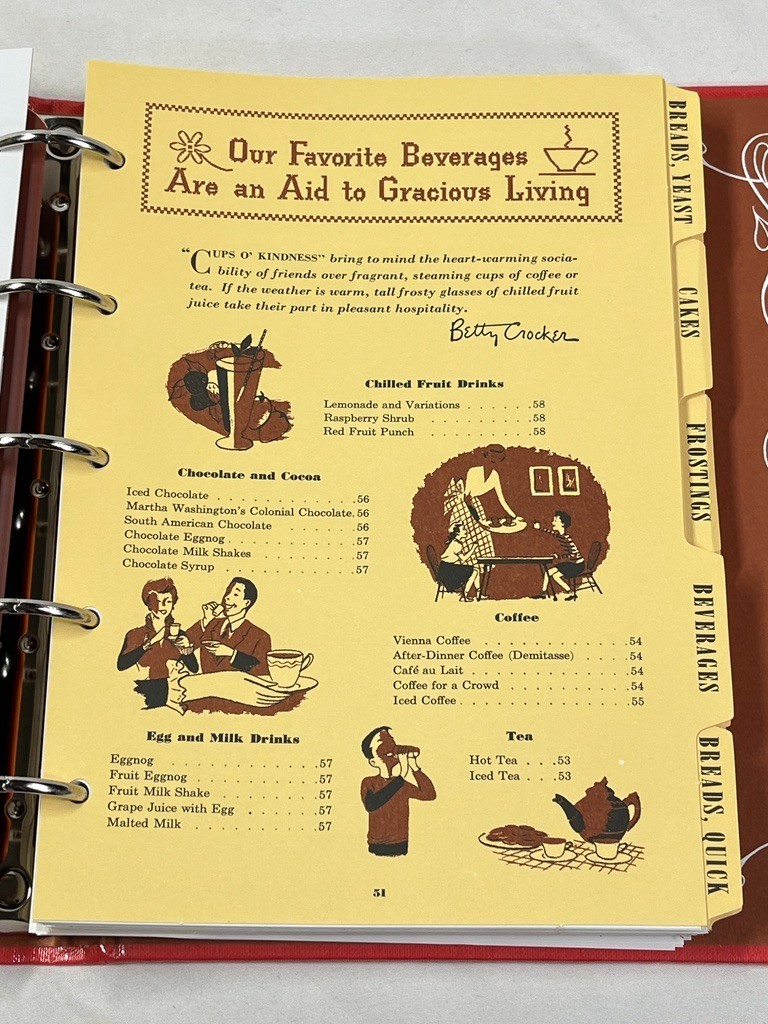 Our Favorite Beverages
Are an Aid to Gracious Living
"CUPS O' KINDNESS" bring to mind the heart-warming socia-
bility of friends over fragrant, steaming cups of coffee or
tea. If the weather is warm, tall frosty glasses of chilled fruit
juice take their part in pleasant hospitality.
Betty Crocker
Chilled Fruit Drinks
Lemonade and Variations . . . . . . .58
Raspberry Shrub . . . . . . . . . .58
Red Fruit Punch . . . . . . . . .58
Chocolate and Cocoa
Iced Chocolate . . . . . . . . . . . .56
Martha Washington's Colonial Chocolate. 56
South American Chocolate . . . . . . .56
Chocolate Eggnog . . . . . . . . . . .57
Chocolate Milk Shakes . . . . . . . . .57
Chocolate Syrup . . . . . . . . . . . .57
Coffee
Vienna Coffee . . . . . . . . . . . .54
After-Dinner Coffee (Demitasse) . . . .54
Café au Lait . . . . . . . . . . . . .54
Coffee for a Crowd . . . . . . . . . .54
Iced Coffee . . . . . . . . . . . . . .55
Egg and Milk Drinks
Eggnog . . . . . . . . . . . .57
Fruit Eggnog . . . . . . . . . .57
Fruit Milk Shake . . . . . . . .57
Grape Juice with Egg . . . . . .57
Malted Milk . . . . . . . . . .57
Tea
Hot Tea . . .53
Iced Tea . . .53
51
BREADS, YEAST
CAKES
FROSTINGS
BEVERAGES
BREADS, QUICK